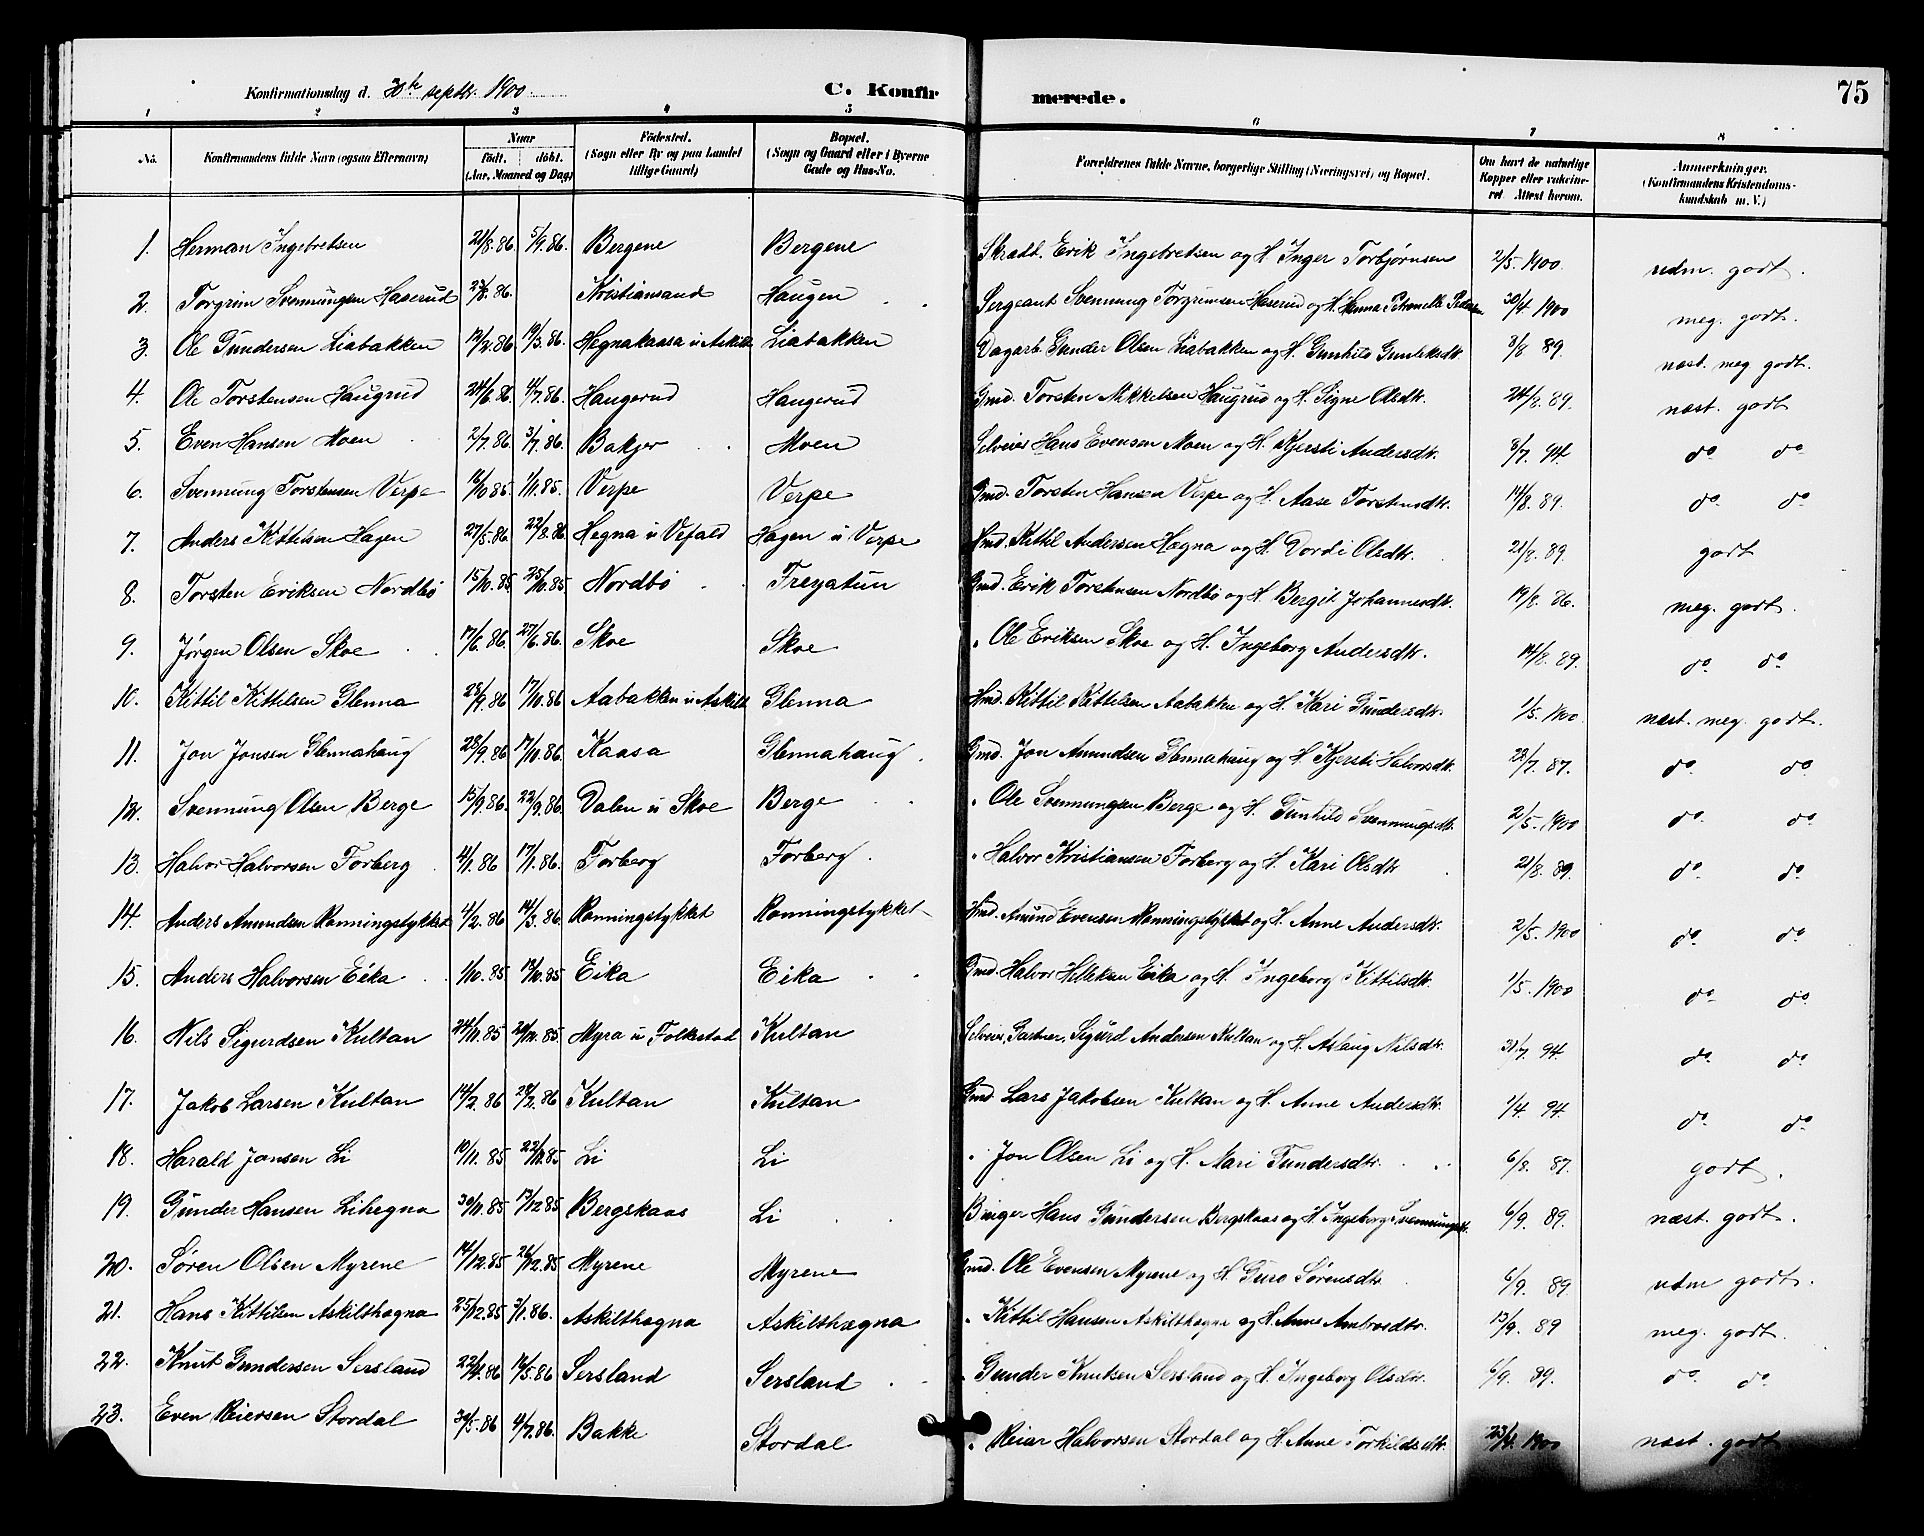 Konfirmationsdag d. 30te septbr. 1900 C. Konfirmerede. 75
1 2 3 4 5 6 7 8
No. Konfirmandens fulde Navn (ogsaa Efternavn) Naar födt. döbt. (Aar, Maaned og Dag) Födested. (Sogn eller By og paa Landet tillige Gaard) Bopæl. (Sogn og Gaard eller i Byerne Gade og Hus-No. Forældrenes fulde Navne, borgerlige Stilling (Næringsvei) og Bopæl. Om havt de naturlige Kopper eller vakcineret. Attest herom. Anmærkninger. (Konfirmandens Kristendomskundskab m. V.)
1. Herman Ingebretsen 21/8.86. 5/9.86. Bergene Bergene Skradd. Erik Ingebretsen og H. Inger Torbjørnsen 2/5.1900. udm. godt.
2. Torgrim Svennungsen Haserud 23/8.86. Kristiansand Haugen Sergeant Svennung Torgrimsen Haserud og H. Hanna Petronelle Pedersen 30/4 1900 meg. godt.
3. Ole Gundersen Liabakken 12/2.86 19/3.86. Hegnakaasa u. Askilt Liabakken Dagarb. Gunder Olsen Liabakken og H. Gunhild Gunleksdtr. 3/8 89. næst. meg godt.
4. Ole Torstensen Haugrud 24/6 86. 4/7.86. Haugerud Haugerud Gmd. Torsten Mikkelsen Haugrud og H. Signe Olsdtr. 24/8.89. næst. godt
5. Even Hansen Moen 2/7.86 3/7.86. Bakjer Moen Selveier Hans Evensen Moen og H. Kjersti Andersdtr. 3/7. 94. do do
6. Svennung Torstensen Verpe 16/10 85. 1/11.85. Verpe Verpe Gmd. Torsten Hansen Verpe og H. Aase Torstensdtr. 14/8.89. do do
7. Anders Kittilsen Hagen 27/5.86. 22/8.86 Hegna u Vefald Hagen u Verpe Hmd. Kittil Andersen Hægna og H. Dordi Olsdtr. 21/8.89. godt
8. Torsten Eriksen Nordbø 15/10.85. 25/10.85 Nordbø Treyatun Gmd. Erik Torstensen Nordbø og H. Bergit Johannesdtr. 19/8.86. meg. godt.
9. Jørgen Olsen Skoe 17/6.86 27/6.86. Skoe Skoe " Ole Eriksen Skoe og H. Ingeborg Andersdtr. 14/8.89. do do
10. Kittil Kittilsen Glenna 28/9.86 17/10.86 Aabakken u Askilt Glenna Hmd. Kittil Kittilsen Aabakken og H. Kari Gundersdtr. 1/5.1900. næst. meg. godt.
11. Jon Jonsen Glennahaug 28/9.86 17/10.86. Kaasa Glennahaug. Gmd. Jon Amundsen Glennahaug og H. Kjersti Halvorsdtr. 28/7. 87. do do
12. Svennung Olsen Berge 15/9.86. 22/9.86. Dalen u Skoe Berge " Ole Svennungsen Berge og H. Gunhild Svennungsdtr. 2/5.1900 do do
13. Halvor Halvorsen Forberg 4/1.86 17/1.86. Forberg Forberg. " Halvor Kristiansen Forberg og H. Kari Olsdtr 21/8.89. do do
14. Anders Amundsen Rønningstykket 1/2.86 14/3.86 Rønningstykket Rønningstykket Hmd. Amund Evensen Rønningstykket og H. Anne Andersdtr. 2/5.1900 do do
15. Anders Halvorsen Eika 1/10.85. 18/10.85 Eika Eika Gmd. Halvor Hileksen Eika og H. Ingeborg Kittilsdtr. 1/5.1900 do do
16. Nils Sigurdsen Kultan 24/11.85 20/12.85. Myra u Folkestad Kultan Selveier, Gartner, Sigurd Andersen Kultan og H. Aslaug Nilsdtr. 31/7 94. do do
17. Jakob Larsen Kultan 14/2.86 28/2.86 Kultan Kultan Gmd. Lars Jakobsen Kultan og H. Anne Andersdtr. 1/4. 94. do do
18. Harald Jonsen Li 10/11.85 22/11.85 Li Li " Jon Olsen Li og H. Mari Tundersdtr. 6/8. 87. godt.
19. Gunder Hansen Lihegna 30/11.85 13/12 85 Bergskaas Li Bruger Hans Gundersen Bergskaas og H. Ingeborg Svennungsdtr. 6/9. 89. næst. godt.
20. Søren Olsen Myrene 14/12.85 26/12.85 Myrene Myrene Gmd. Ole Evensen Myrene og H. Guro Sørensdtr. 6/9. 89. udm godt.
21. Hans Kittilsen Askilthegna 25/12.85 3/1.86. Askilthegna Askilthægna " Kittil Hansen Askilthegna og H. Anne Ambrosdtr. 13/9. 89 meg. godt.
22. Knut Gundersen Sersland 22/4.86 16/5.86 Sersland Sersland " Gunder Knutsen Sersland og H. Ingeborg Olsdtr. 6/9. 89. do do
23. Even Reiersen Stordal 30/5.86 4/7.86. Bakke Stordal " Reiar Halvorsen Stordal og H. Anne Torkildsdtr. 23/4.1900 næst. godt